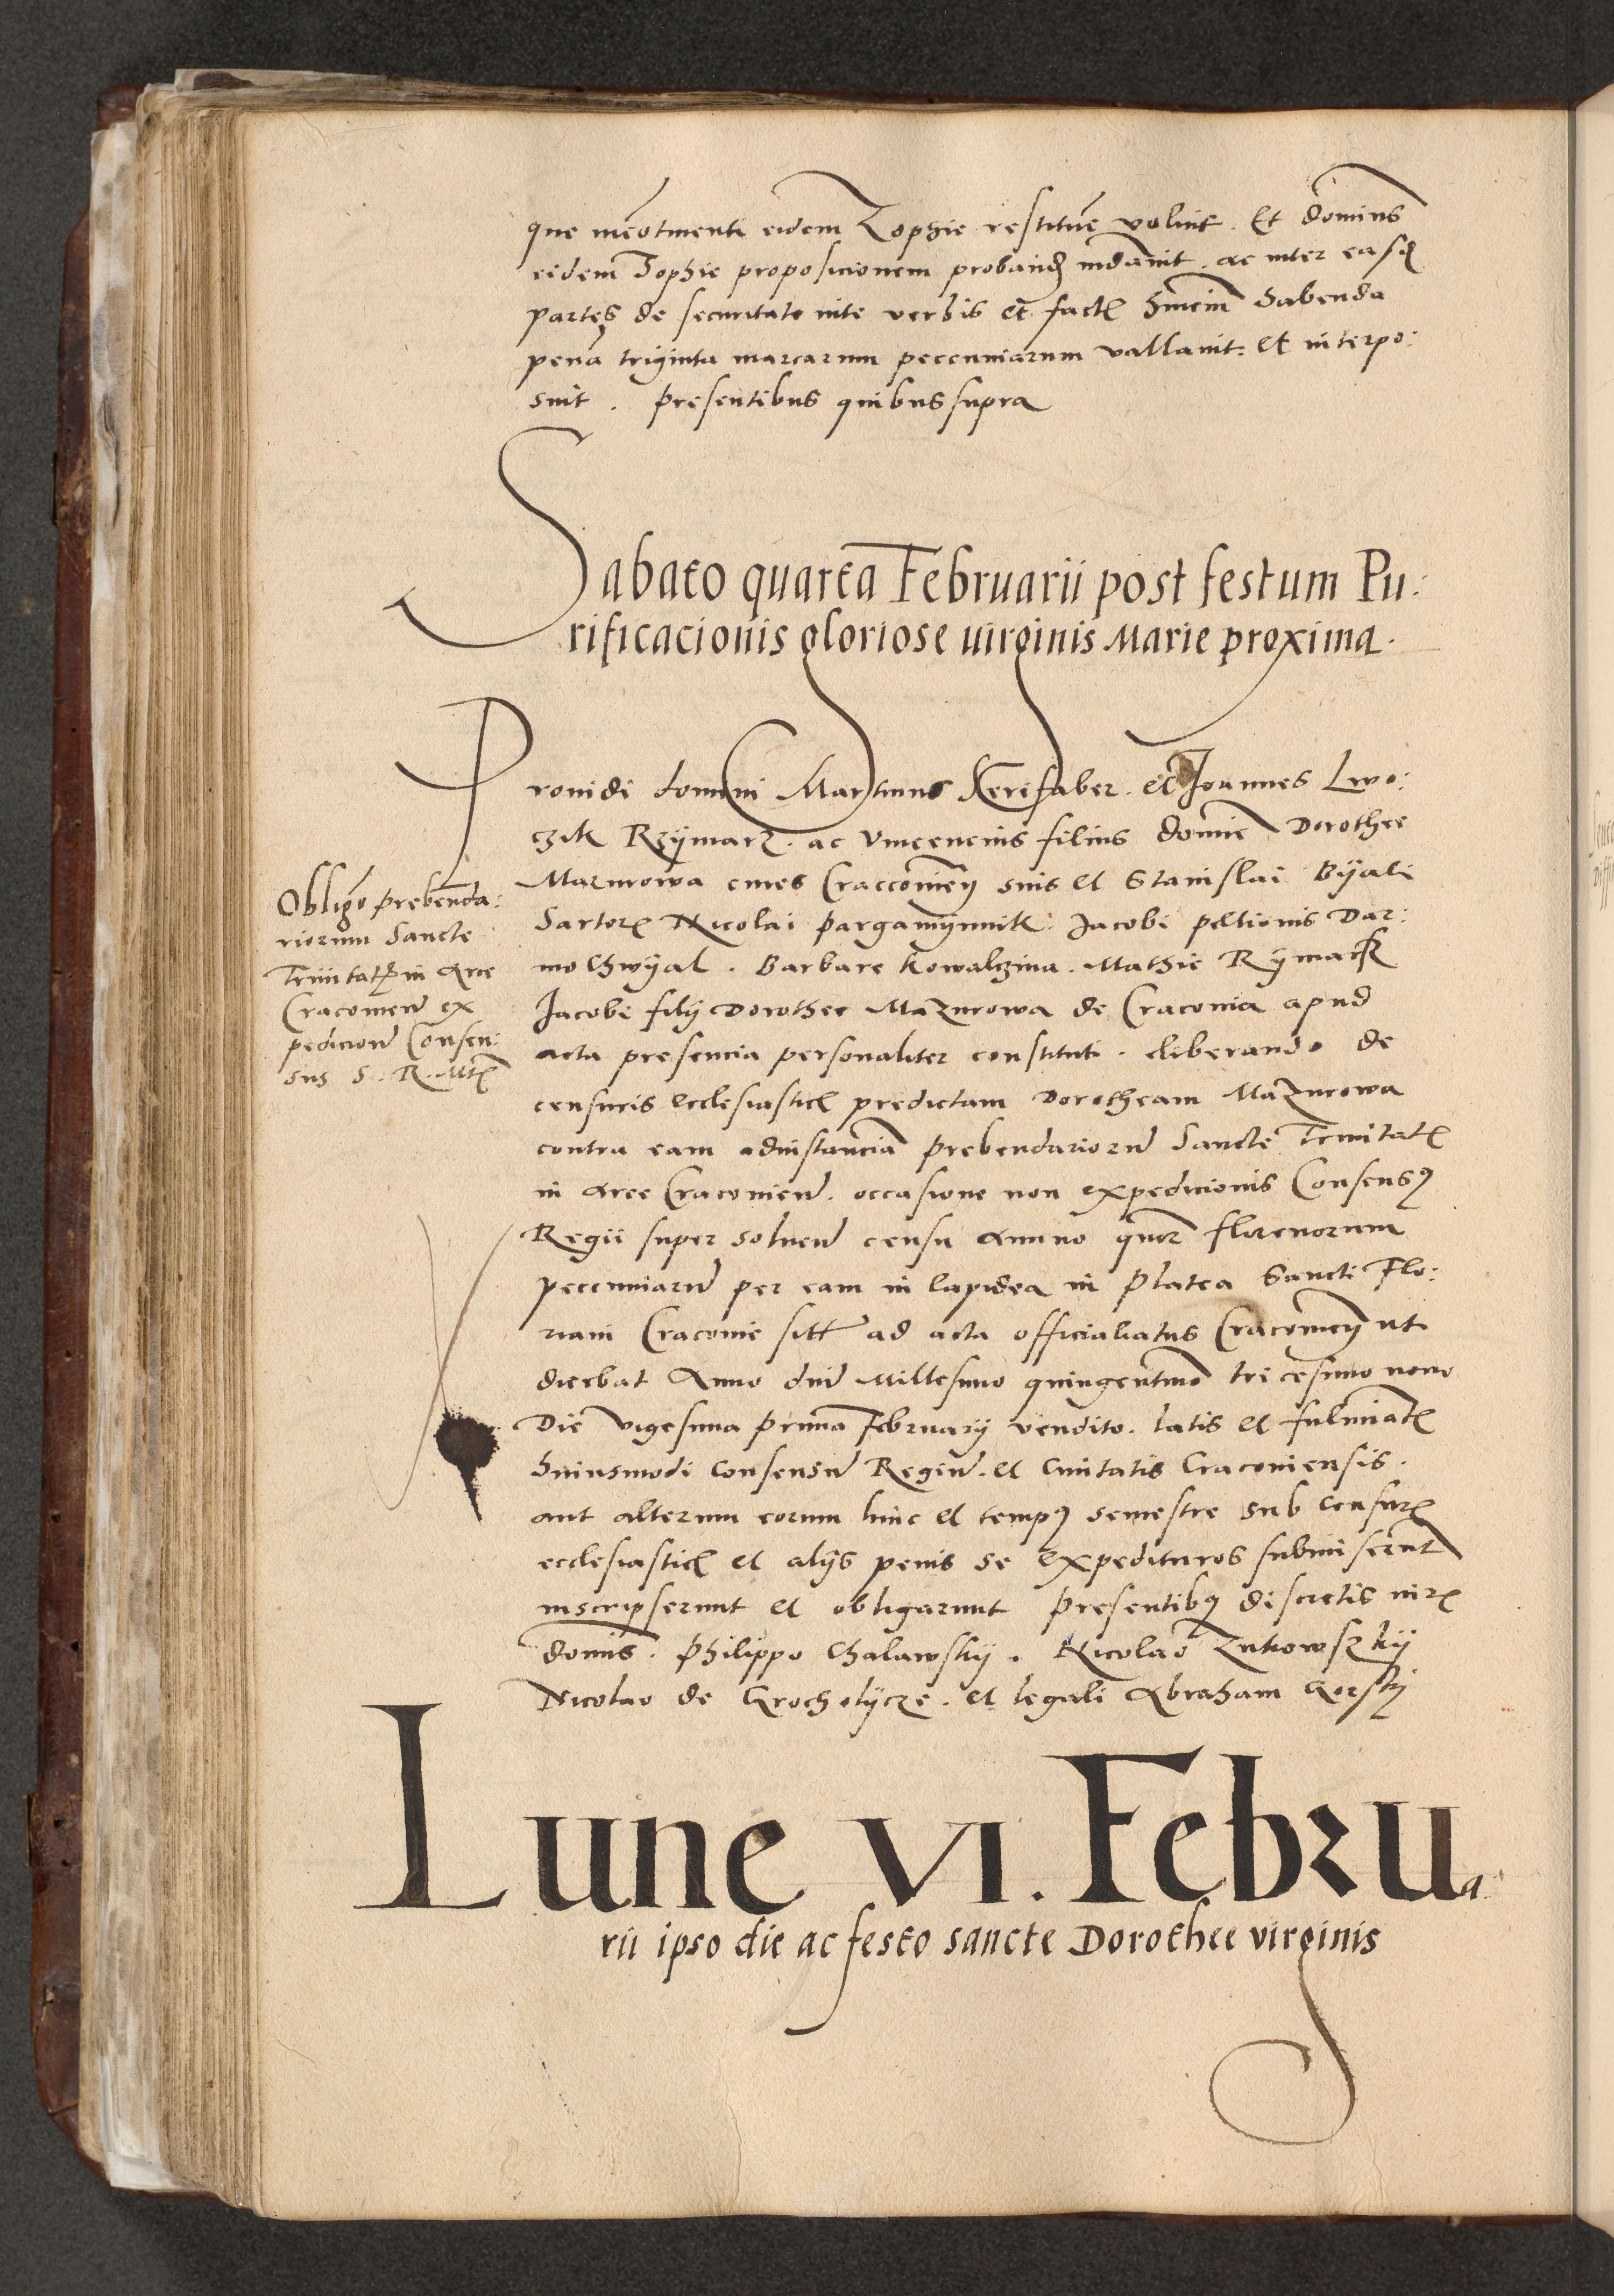 que eidem Zophie restituere voluit. Et dominus
eidem Sophie proposicionem proband indanit. ac inter easd
partes de securitate vite verbis et fact hincin habenda
pena triginta marcarum pecuniarum vallavit: et interpo:
suit. presentibus quibus supra
Sabato quarta Februarii post festum Pu:
rificacionis gloriose virginis Marie proxima.
Providi domini Martinus faber. et Joannes Lwo:
czik Rzÿmarz. ac Vincencius filius domine Dorothee
Mazurowa cives Cracovien suis et Stanislai Bÿali
Sartor Nicolai pargamÿnnik. Jacobi pellionis Dar:
mochwÿal. Barbare Kowalczina. Mathie Rÿmarz
Jacobi filij Dorothee Mazurowa de Cracovia apud
acta presencia personaliter constituti. eliberando de
censuris ecclesiastic predictam Dorotheam Mazurowa
contra eam ad instanciam prebendariorum Sancte Trinitat
in Arce Cracovien. occasione non expedicionis Consensus
Regii super solven censu annuo quor florenorum
pecuniarum per eam in lapidea in Platea Sancti Flo:
riani Cracovie sitt ad acta officialatus Cracovien ut
dicebat Anno dni Millesimo quingentmo tricesimo nono
Die vigesima prima Februarij vendito. latis et fulminat
huiusmodi Consensum Regium. et Civitatis Cracoviensis.
aut alterum eorum hinc et tempus semestre sub censur
ecclesiastic et alÿs penis se expedituros submiserunt
inscripserunt et obligarunt presentibus discretis vir
domis. Philippo Chalawskÿ. Nicolao Zukowszkÿ
Nicolao de Grocholÿcze. et legali Abraham Gorskÿ
Obligo prebenda:
riorum Sancte
Trinitat in Arce
Cracovien ex
pedicion Consen:
sus S. R. Mt
Lune VI. Februa:
rii ipso die ac festo sancte Dorothee virginis